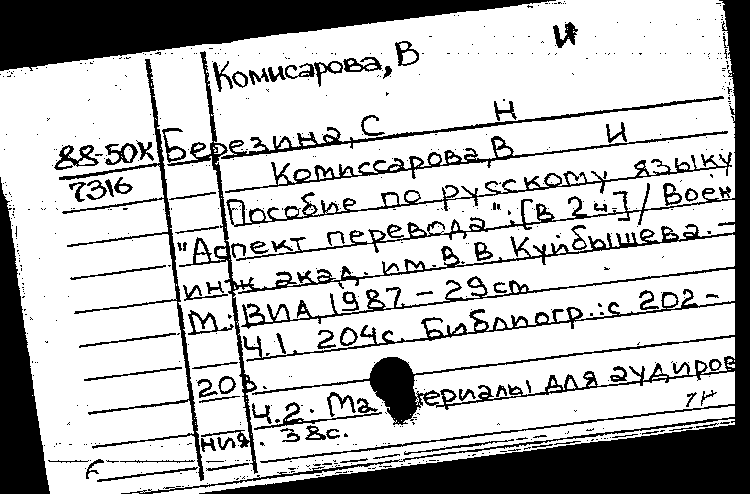 Комисарова, В И
88-50К Березина, С Н
7316 Комиссарова, В И
Пособие по русскому языку
"Аспект перевода": [В 2 ч.] / Воен
инж акад. им. В. В. Куйбышева. –
М.: ВИА, 1987 – 29cm
Ч.1. 204с. Библиогр.: с 202 –
203.
Ч.2. Материалы для аудирова
ния. 38с.